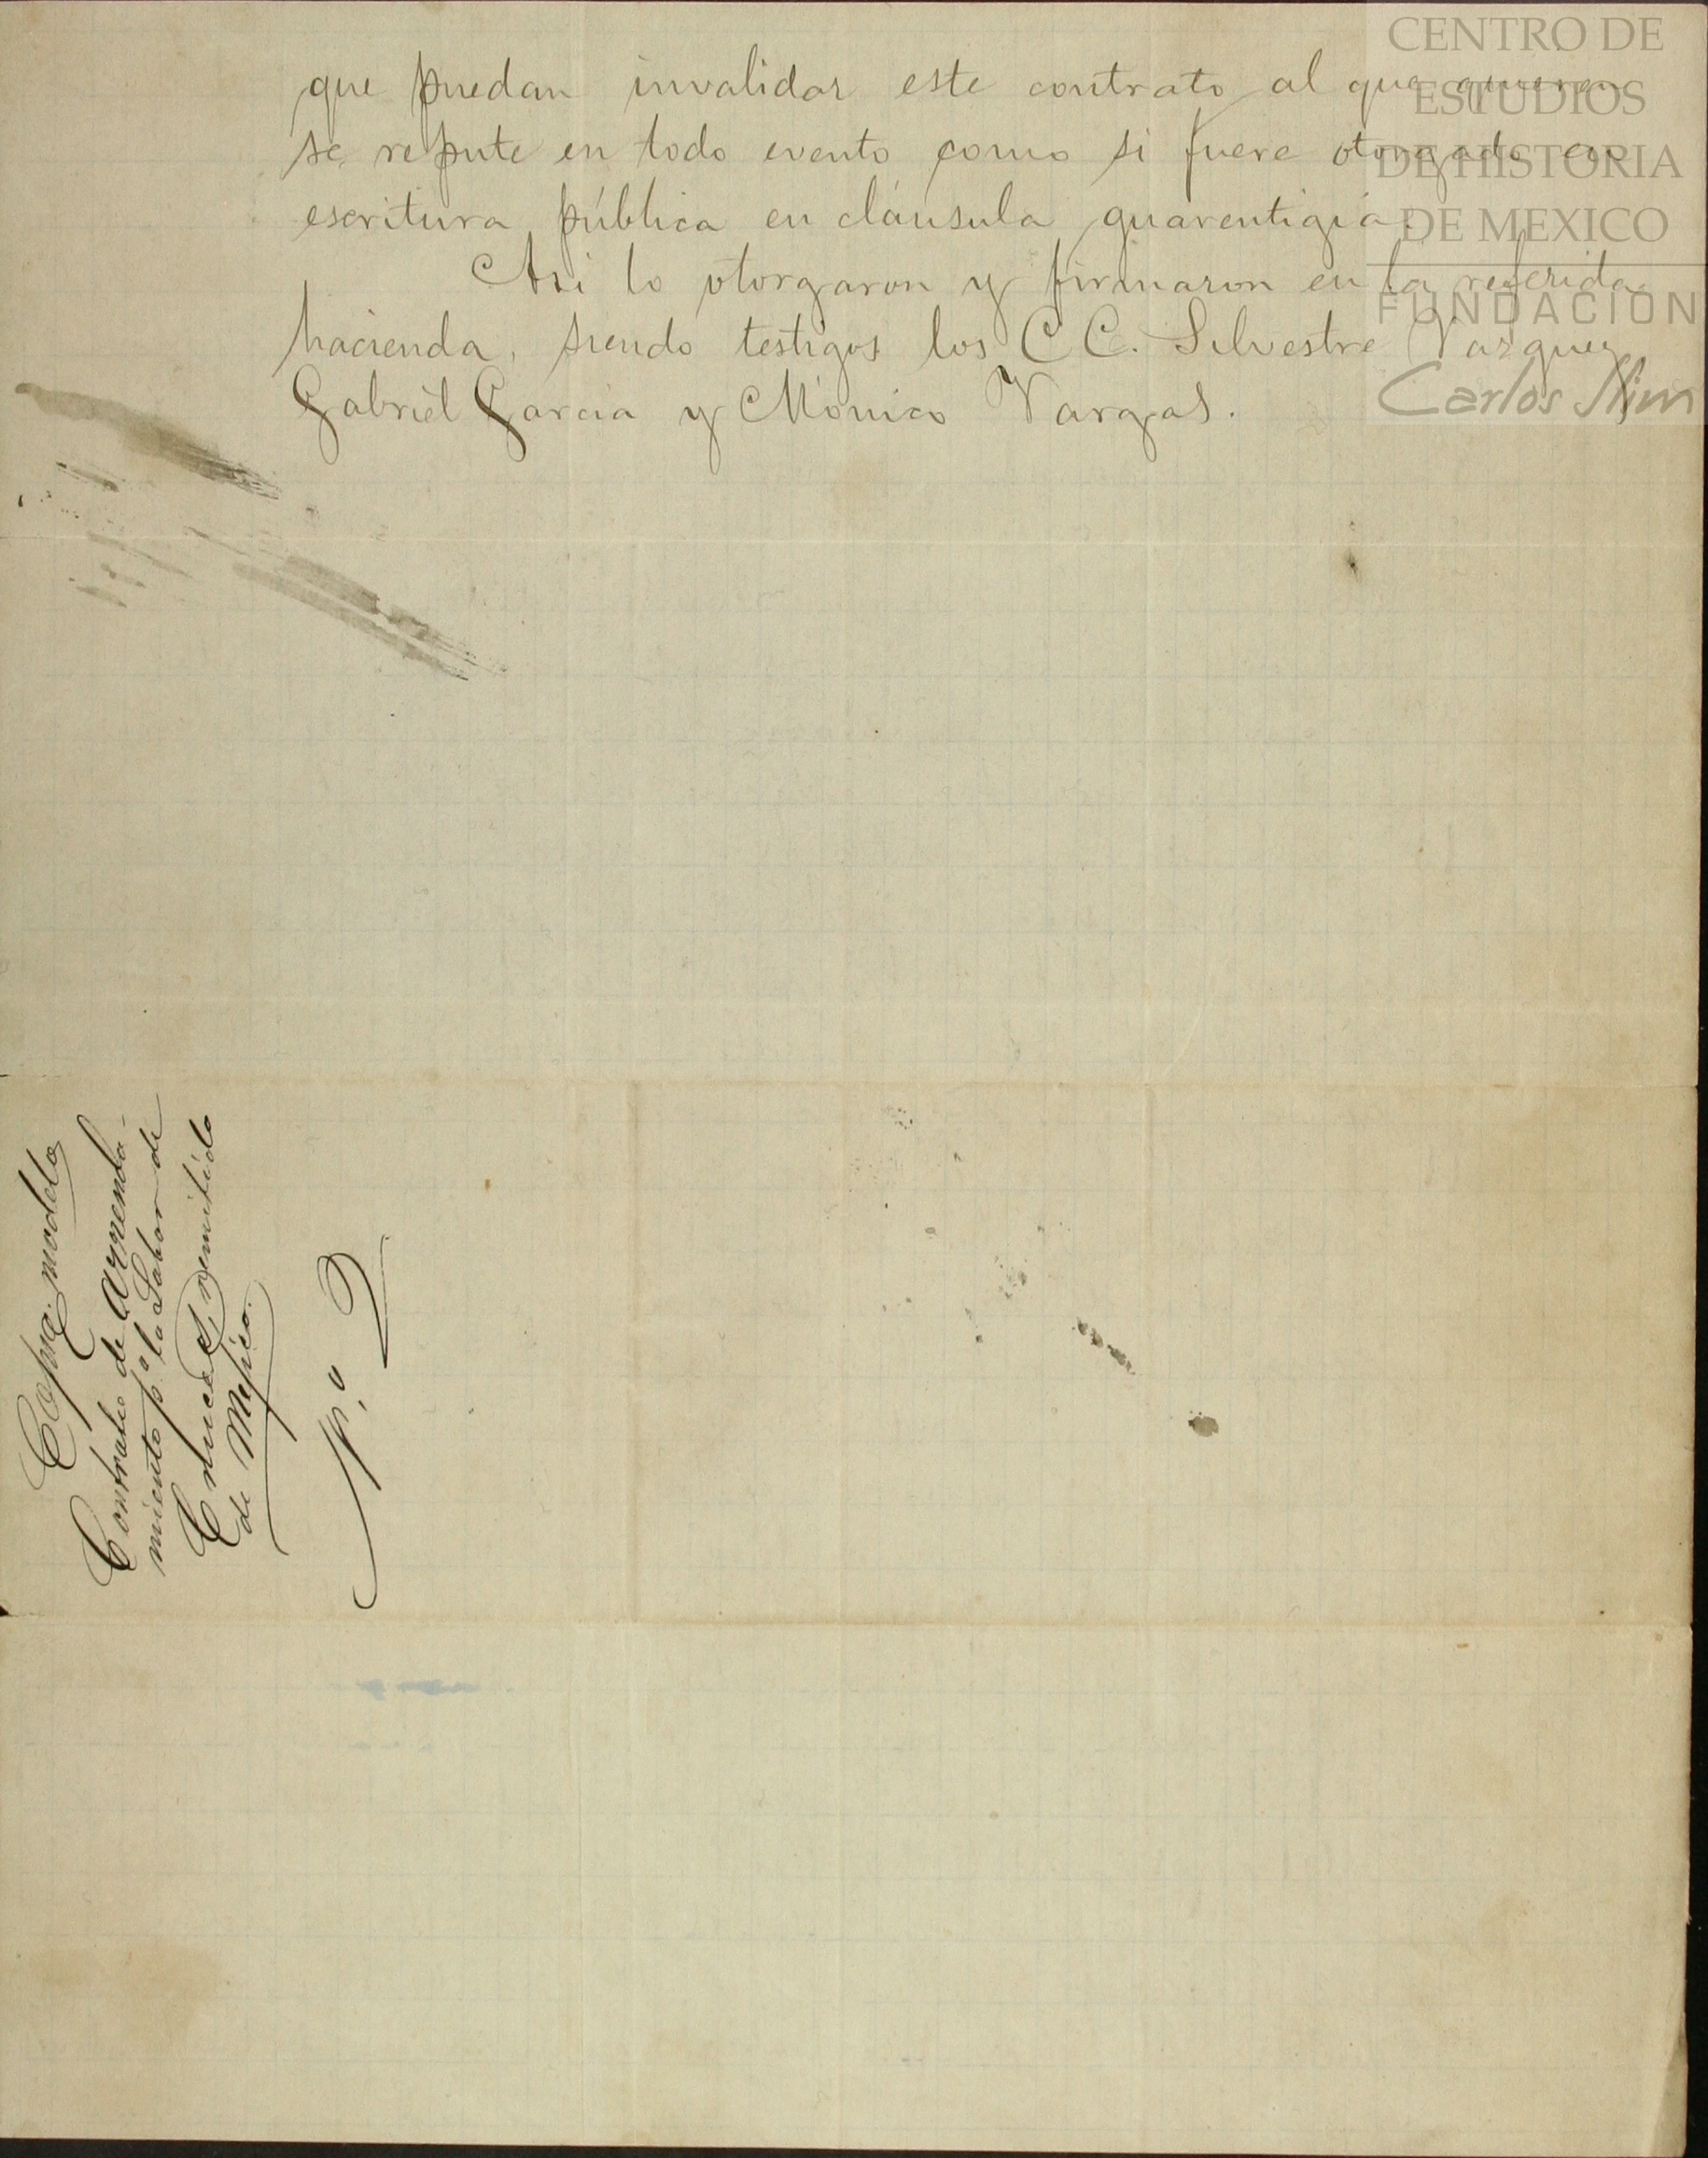 que puedan invalidar este contrato al que quieren
se repute en todo evento como si fuere otorgado en
escritura pública en cláusula guarentigia.
Asi lo otorgaron y firmaron en la referida
hacienda, siendo testigos los C C. Silvestre Vazquez
Gabriel Garcia y Mónico Vargas.
Copia modelo
Contrato de Arrenda-
miento pª la Labor de
Cruces, remitido
de Mejico.
N.º 2
CENTRO DE
ESTUDIOS
DE HISTORIA
DE MEXICO
FUNDACION
Carlos Slim